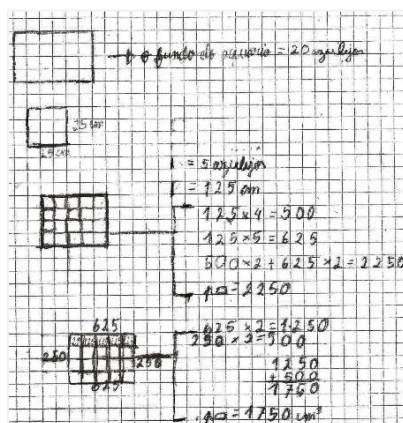 → o fundo do aquário = 20 azulejos
25 cm
25 cm
= 5 azulejos
= 125 cm
125 × 4 = 500
125 × 5 = 625
500 × 2 + 625 × 2 = 2250
= 2250
625
250
250
625
625 × 2 = 1.250
250 × 2 = 500
1250
+ 500
1750
= 1750 cm²